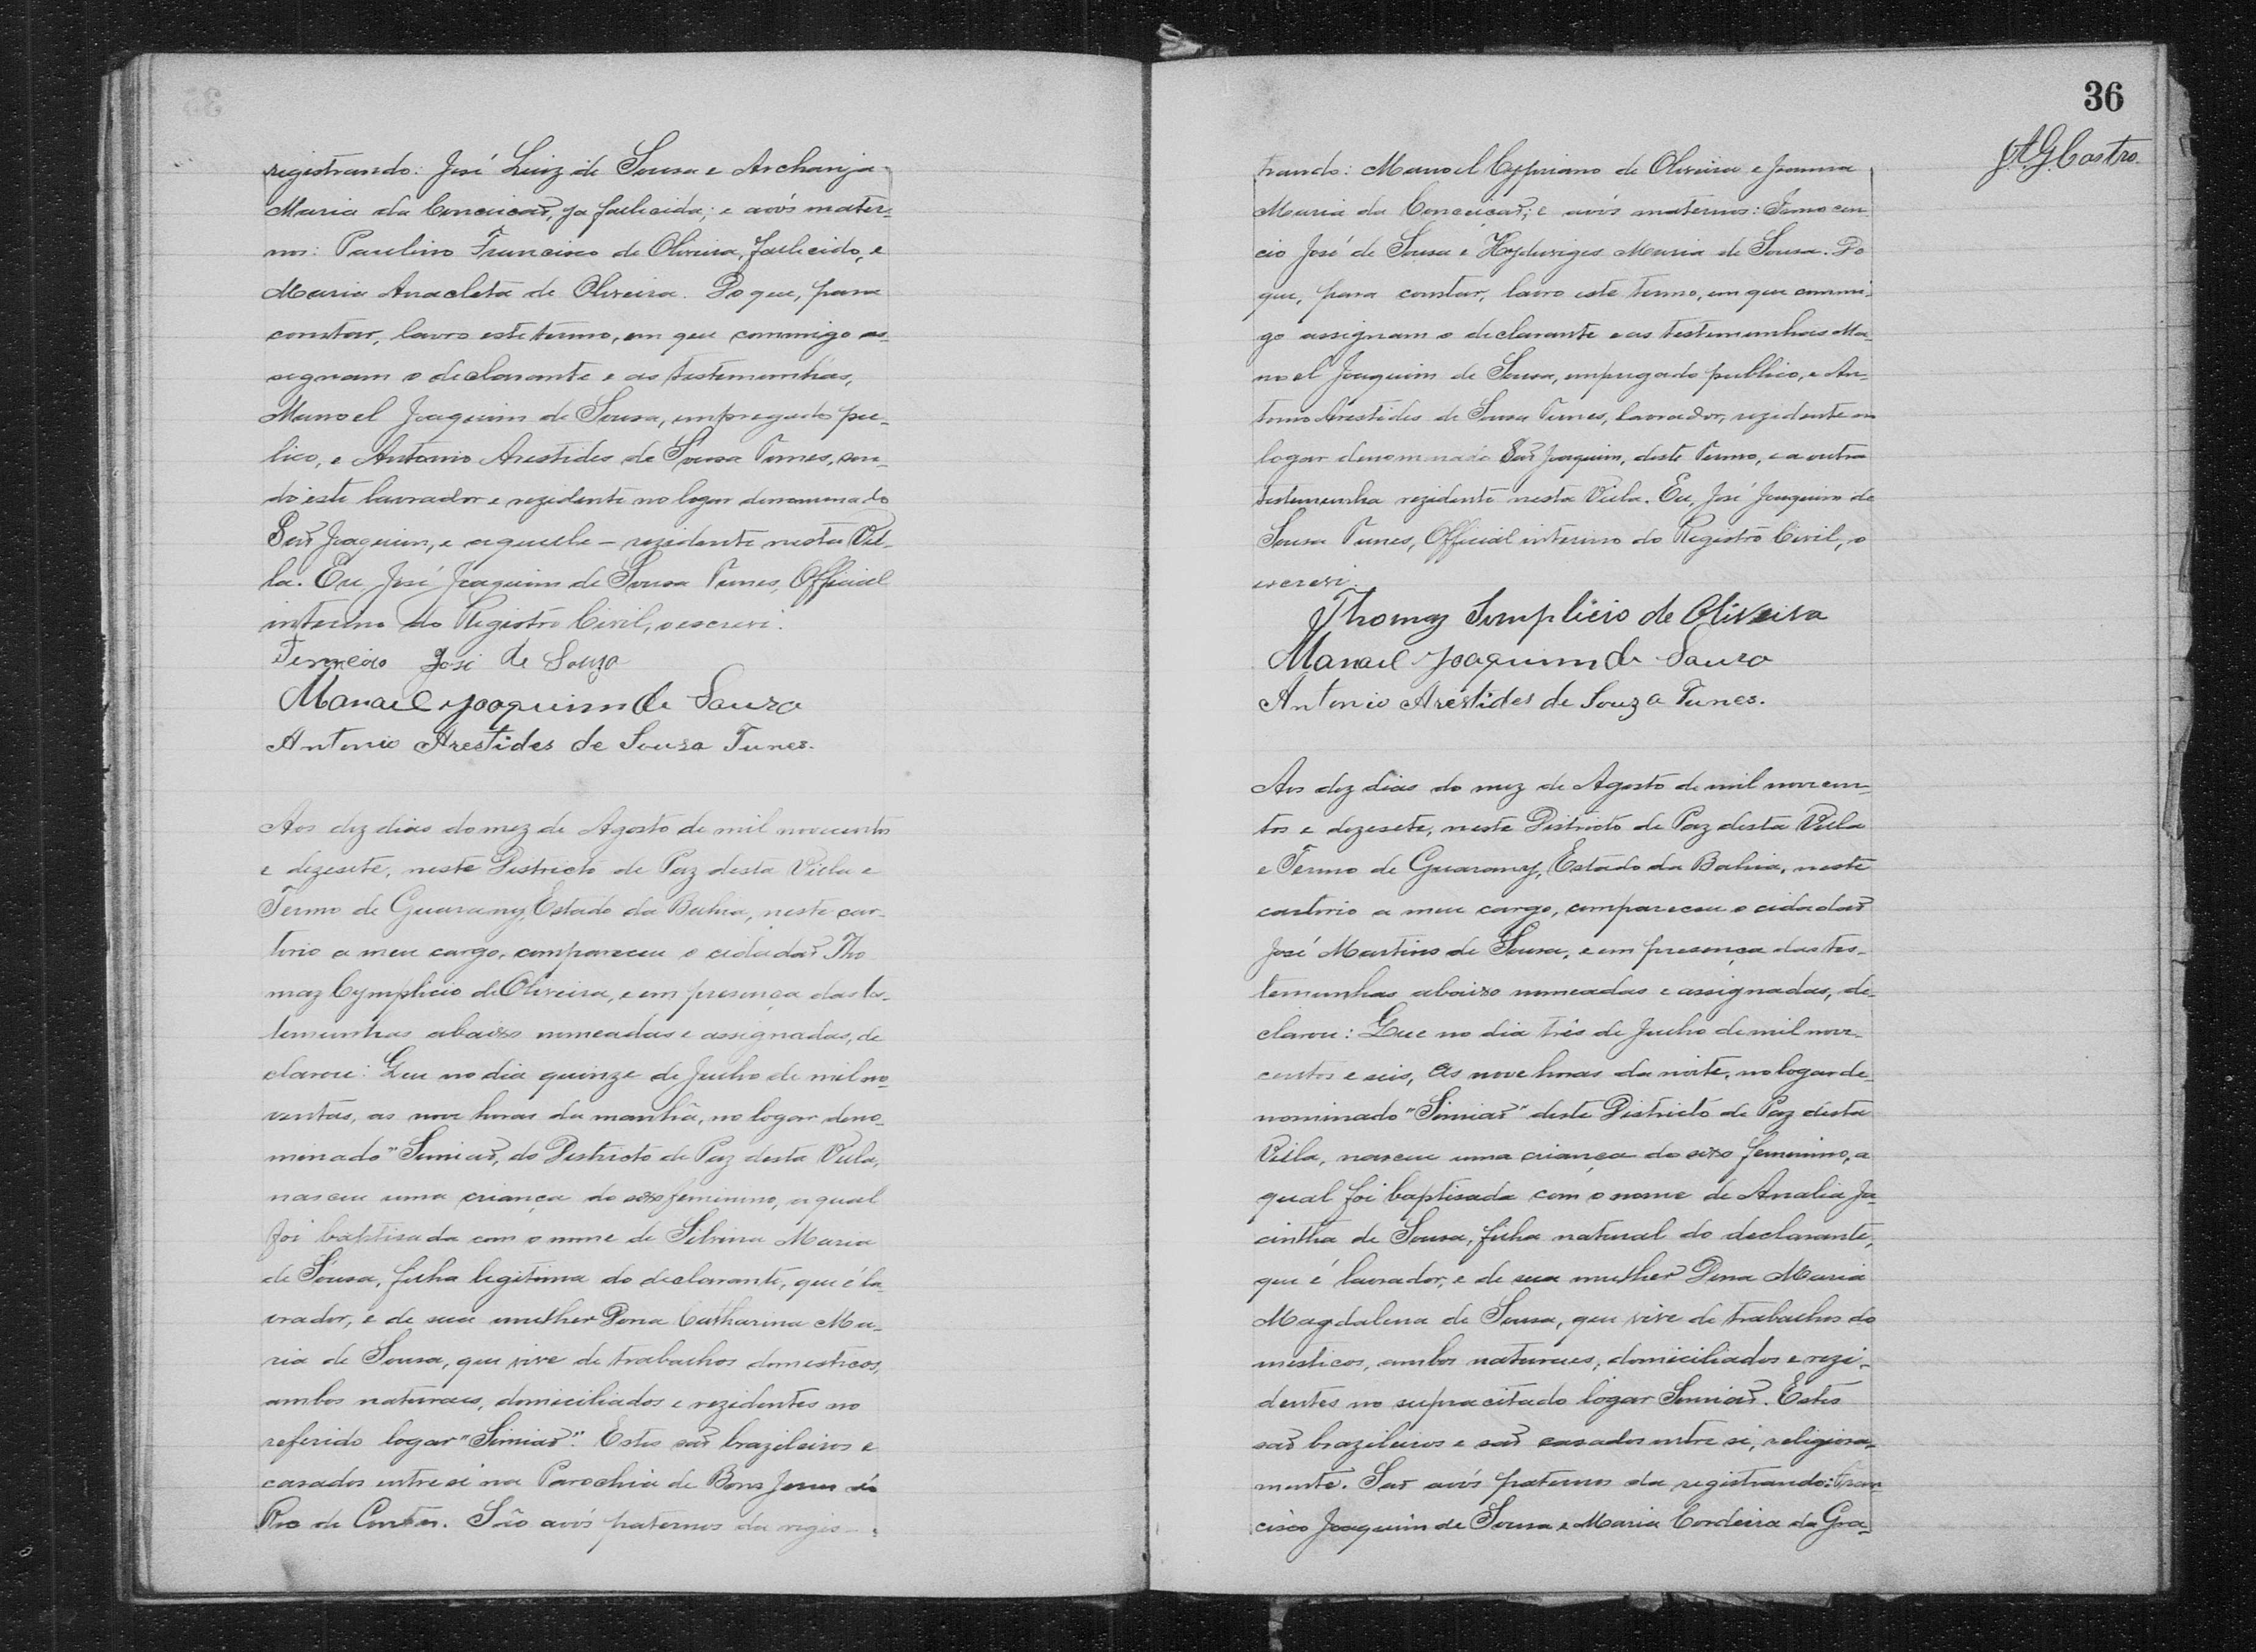 registrando: José Luiz de Sousa e Archanja
Maria da Conceicaõ, ja fallecida; e avós mater-
nos: Paulino Francisco de Oliveira, fallecido, e
Maria Anacleta de Oliveira. Do que, para
constar, lavro este termo, em que commigo as-
segnam o declarante e as testemunhas,
Manoel Joaquim de Sousa, empregado pu-
lico, e Antonio Arestides de Sousa Tunes, sen-
do este lavrador e rezidente no logar denominado
Saõ Joaquim, e aquelle - rezidente nesta Vil-
la. Eu José Joaquim de Sousa Tunes, Official
interino do Registro Civil, o escrevi.
José de Souza
Manoel Joaquim de Souza
Antonio Arestides de Souza Tunes.
Aos dez dias do mez de Agosto de mil novecentos
e dezesete, neste Districto de Paz desta Villa e
Termo de Guarany, Estado da Bahia, neste car-
torio a meu cargo, compareceu o cidadaõ Tho
maz Cymplicio de Oliveira, e em presença das tes-
temunhas abaixo nomeadas e assignadas, de
clarou: Que no dia quinze de Julho de mil no-
ventos, as nove horas da manhã, no logar deno-
minado "Simiaõ, do Districto de Paz desta Villa,
nasceu uma criança do sexo feminino, a qual
foi baptisada com o nome de Silvina Maria
de Sousa, filha legitima do declarante, que é la-
vrador, e de sua mulher Dona Catharina Ma-
ria de Sousa, que vive de trabalhos domesticos,
ambos naturaes, domiciliados e rezidentes no
referido logar "Simiaõ". Estes saõ brazileiros e
casados entre si na Parochia de Bom Jesus do
Rio de Contas. São avós paternos da regis-
36
J.A.G. Castro.
trando: Manoel Cypriano de Oliveira e Joanna
Maria da Conceicaõ; e avós maternos: Innocen-
cio José de Sousa e Hyduviges Maria de Sousa. Do
que, para constar, lavro este termo, em que commi-
go assignam o declarante e as testemunhas Ma-
noel Joaquim de Sousa, empregado publico, e An-
tonio Arestides de Sousa Tunes, lavrador, rezidente no
logar denominado Saõ Joaquim, deste Termo, e a outra
testemunha rezidente nesta Villa. Eu, José Joaquim de
Sousa Tunes, Official interino do Registro Civil, o
escrevi.
Thomaz Simplicio de Oliveira
Manoel Joaquim de Souza
Antonio Arestides de Souza Tunes.
Aos dez dias do mez de Agosto de mil novecen-
tos e dezesete, neste Districto de Paz desta Villa
e Termo de Guarany, Estado da Bahia, neste
cartorio a meu cargo, compareceu o cidadaõ
José Martins de Sousa, e em presença das tes-
temunhas abaixo nomeadas e assignadas, de-
clarou: Que no dia três de Julho de mil nove-
centos e seis, as nove horas da noite, no logar de-
nominado "Simiaõ" deste Districto de Paz desta
Villa, nasceu uma criança do sexo feminino, a
qual foi baptisada com o nome de Analia Ja-
cintha de Sousa, filha natural do declarante,
que é lavrador, e de sua mulher Dona Maria
Magdalena de Sousa, que vive de trabalhos do
mesticos, ambos naturaes, domiciliados e rezi-
dentes no supracitado logar Simiaõ. Estes
saõ brazileiros e saõ casados entre si, religiosa-
mente. Saõ avós paternos da registrando: Fran-
cisco Joaquim de Sousa e Maria Cordeira da Gra-